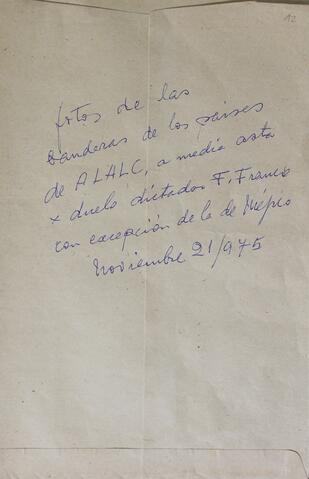 12
fotos de las
banderas de los países
de ALALC, a media asta
x duelo dictador F. Franco
con excepción de la de Méjico
Noviembre 21/975